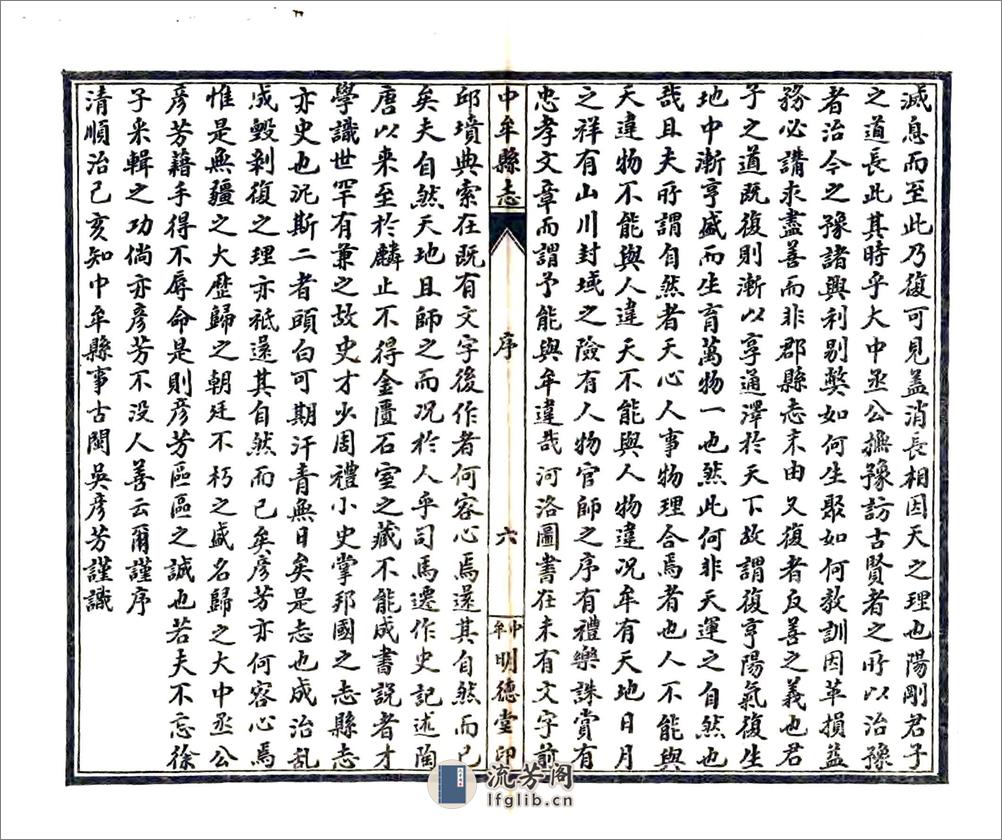 滅息而至此乃復可見盖消長相因天之理也陽剛君子
之道長此其時乎大中丞公撫豫訪古賢者之所以治豫
者治今之豫諸興利別弊如何生聚如何教訓因革損益
務必講求盡善而非郡縣志末由又復者反善之義也君
子之道既復則漸以享通澤於天下故謂復亨陽氣復生
地中漸亨盛而生育萬物一也然此何非天運之自然也
哉且夫所謂自然者天心人事物理合焉者也人不能與
天違物不能與人違天不能與人物違况牟有天地日月
之祥有山川封域之險有人物官師之序有禮樂誅賞有
忠孝文章而謂予能與牟違哉河洛圖書在未有文字前
中牟縣志
序
六
中牟明德堂印
邱墳典索在既有文字後作者何容心焉還其自然而已
矣夫自然天地且師之而况於人乎司馬遷作史記述陶
唐以来至於麟止不得金匱石室之藏不能成書説者才
學識世罕有兼之故史才少周禮小史掌邦國之志縣志
亦史也况斯二者頭白可期汗青無日矣是志也成治亂
成毀剥復之理亦祗還其自然而已矣彦芳亦何容心焉
惟是無疆之大歷歸之朝廷不朽之盛名歸之大中丞公
彦芳藉手得不辱命是則彦芳區區之誠也若夫不忘徐
子采輯之功倘亦彦芳不没人善云爾謹序
清順治己亥知中牟縣事古閩吴彦芳謹識
流芳阁
lfglib.cn